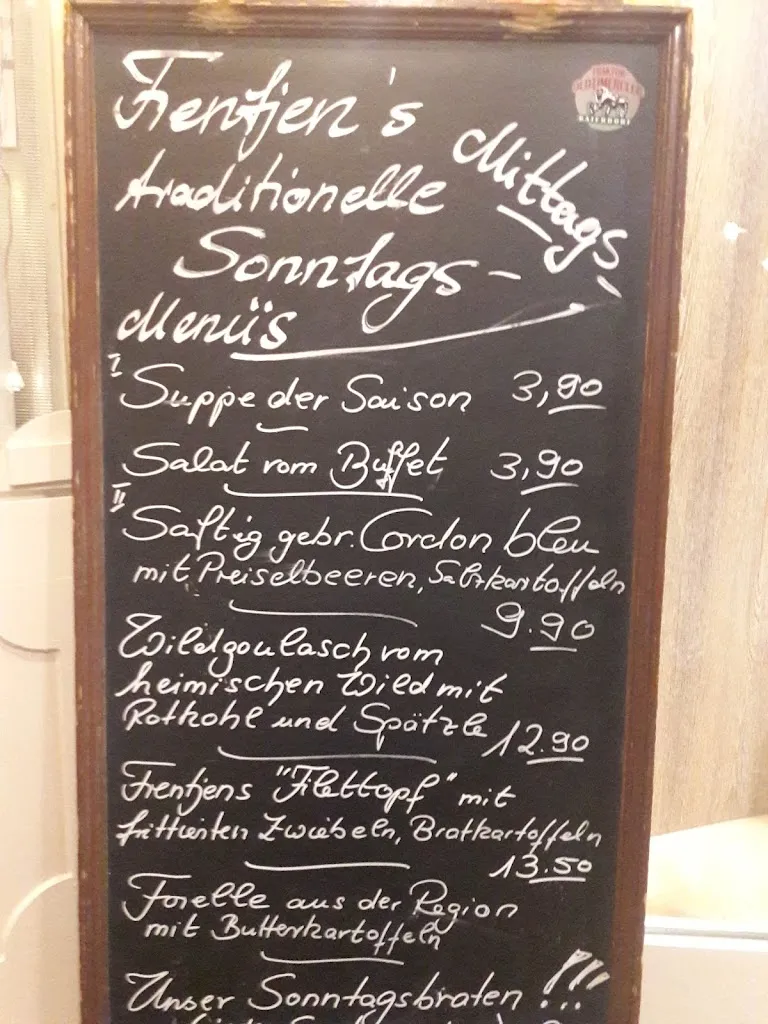 Frentjen's
Mittags-
traditionelle
Sonntags-
Menüs
I
Suppe der Saison 3,90
Salat vom Buffet 3,90
II
Saftig gebr. Cordon bleu
mit Preiselbeeren, Salzkartoffeln
9.90
Wildgoulasch vom
heimischen Wild mit
Rotkohl und Spätzle 12.90
Frentjens "Filettopf" mit
frittierten Zwiebeln, Bratkartoffeln
13.50
Forelle aus der Region
mit Butterkartoffeln
Unser Sonntagsbraten !!!